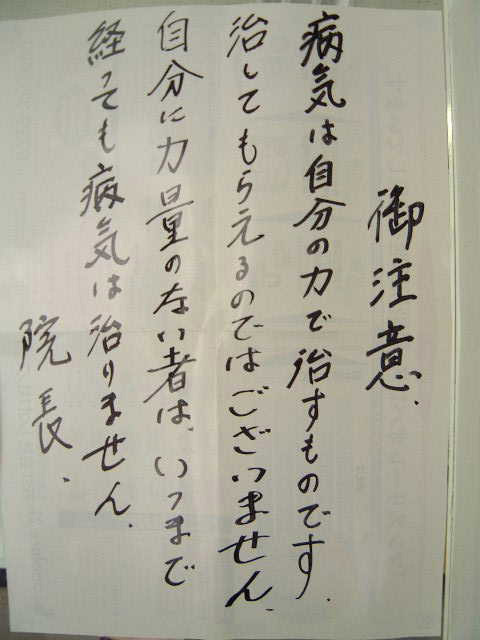 御注意.
病気は自分の力で治すものです.
治してもらえるのではございません.
自分に力量のない者は、いつまで
経っても病気は治りません.
院長.